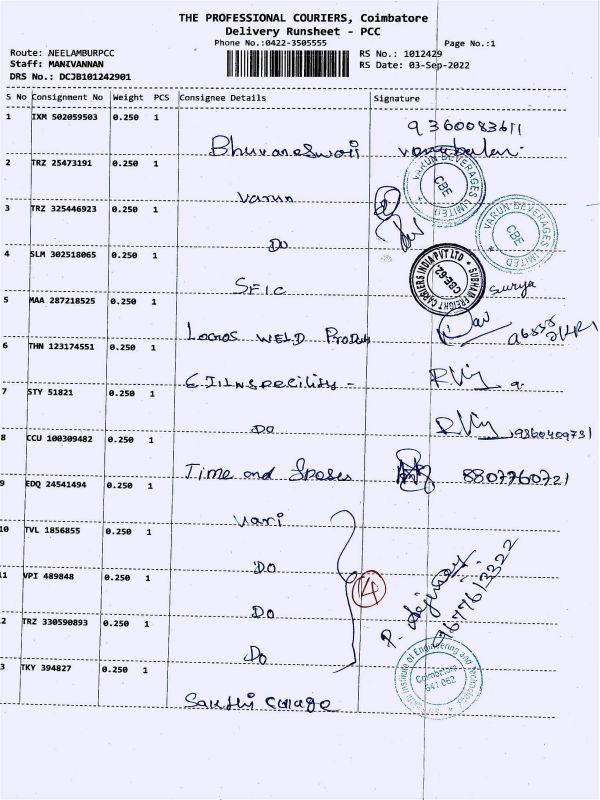 THE PROFESSIONAL COURIERS, Coimbatore
Delivery Runsheet - PCC
Phone No.:0422-3505555
Page No.:1
Route: NEELAMBURPCC
RS No.: 1012429
Staff: MANIVANNAN
RS Date: 03-Sep-2022
DRS No.: DCJB101242901
S No Consignment No Weight PCS Consignee Details Signature
1 IXM 502059503 0.250 1
9360083611
Bhuvaneswari
2 TRZ 25473191 0.250 1
Varun
VARUN BEVERAGES LIMITED
CBE
3 TRZ 325446923 0.250 1
Do
VARUN BEVERAGES LIMITED
CBE
4 SLM 302518065 0.250 1
SFIC
SUBHAM FREIGHT CARRIERS INDIA PVT LTD
CBE-62
Surya
5 MAA 287218525 0.250 1
WELD
6 THN 123174551 0.250 1
7 STY 51821 0.250 1
Do
9360409731
8 CCU 100309482 0.250 1
Time and
8807760721
9 EDQ 24541494 0.250 1
Vari
10 TVL 1856855 0.250 1
Do
4
11 VPI 489848 0.250 1
Do
12 TRZ 330590893 0.250 1
Do
13 TKY 394827 0.250 1
Institute of Engineering and Technology
Coimbatore
641 062
Sakthi Collage